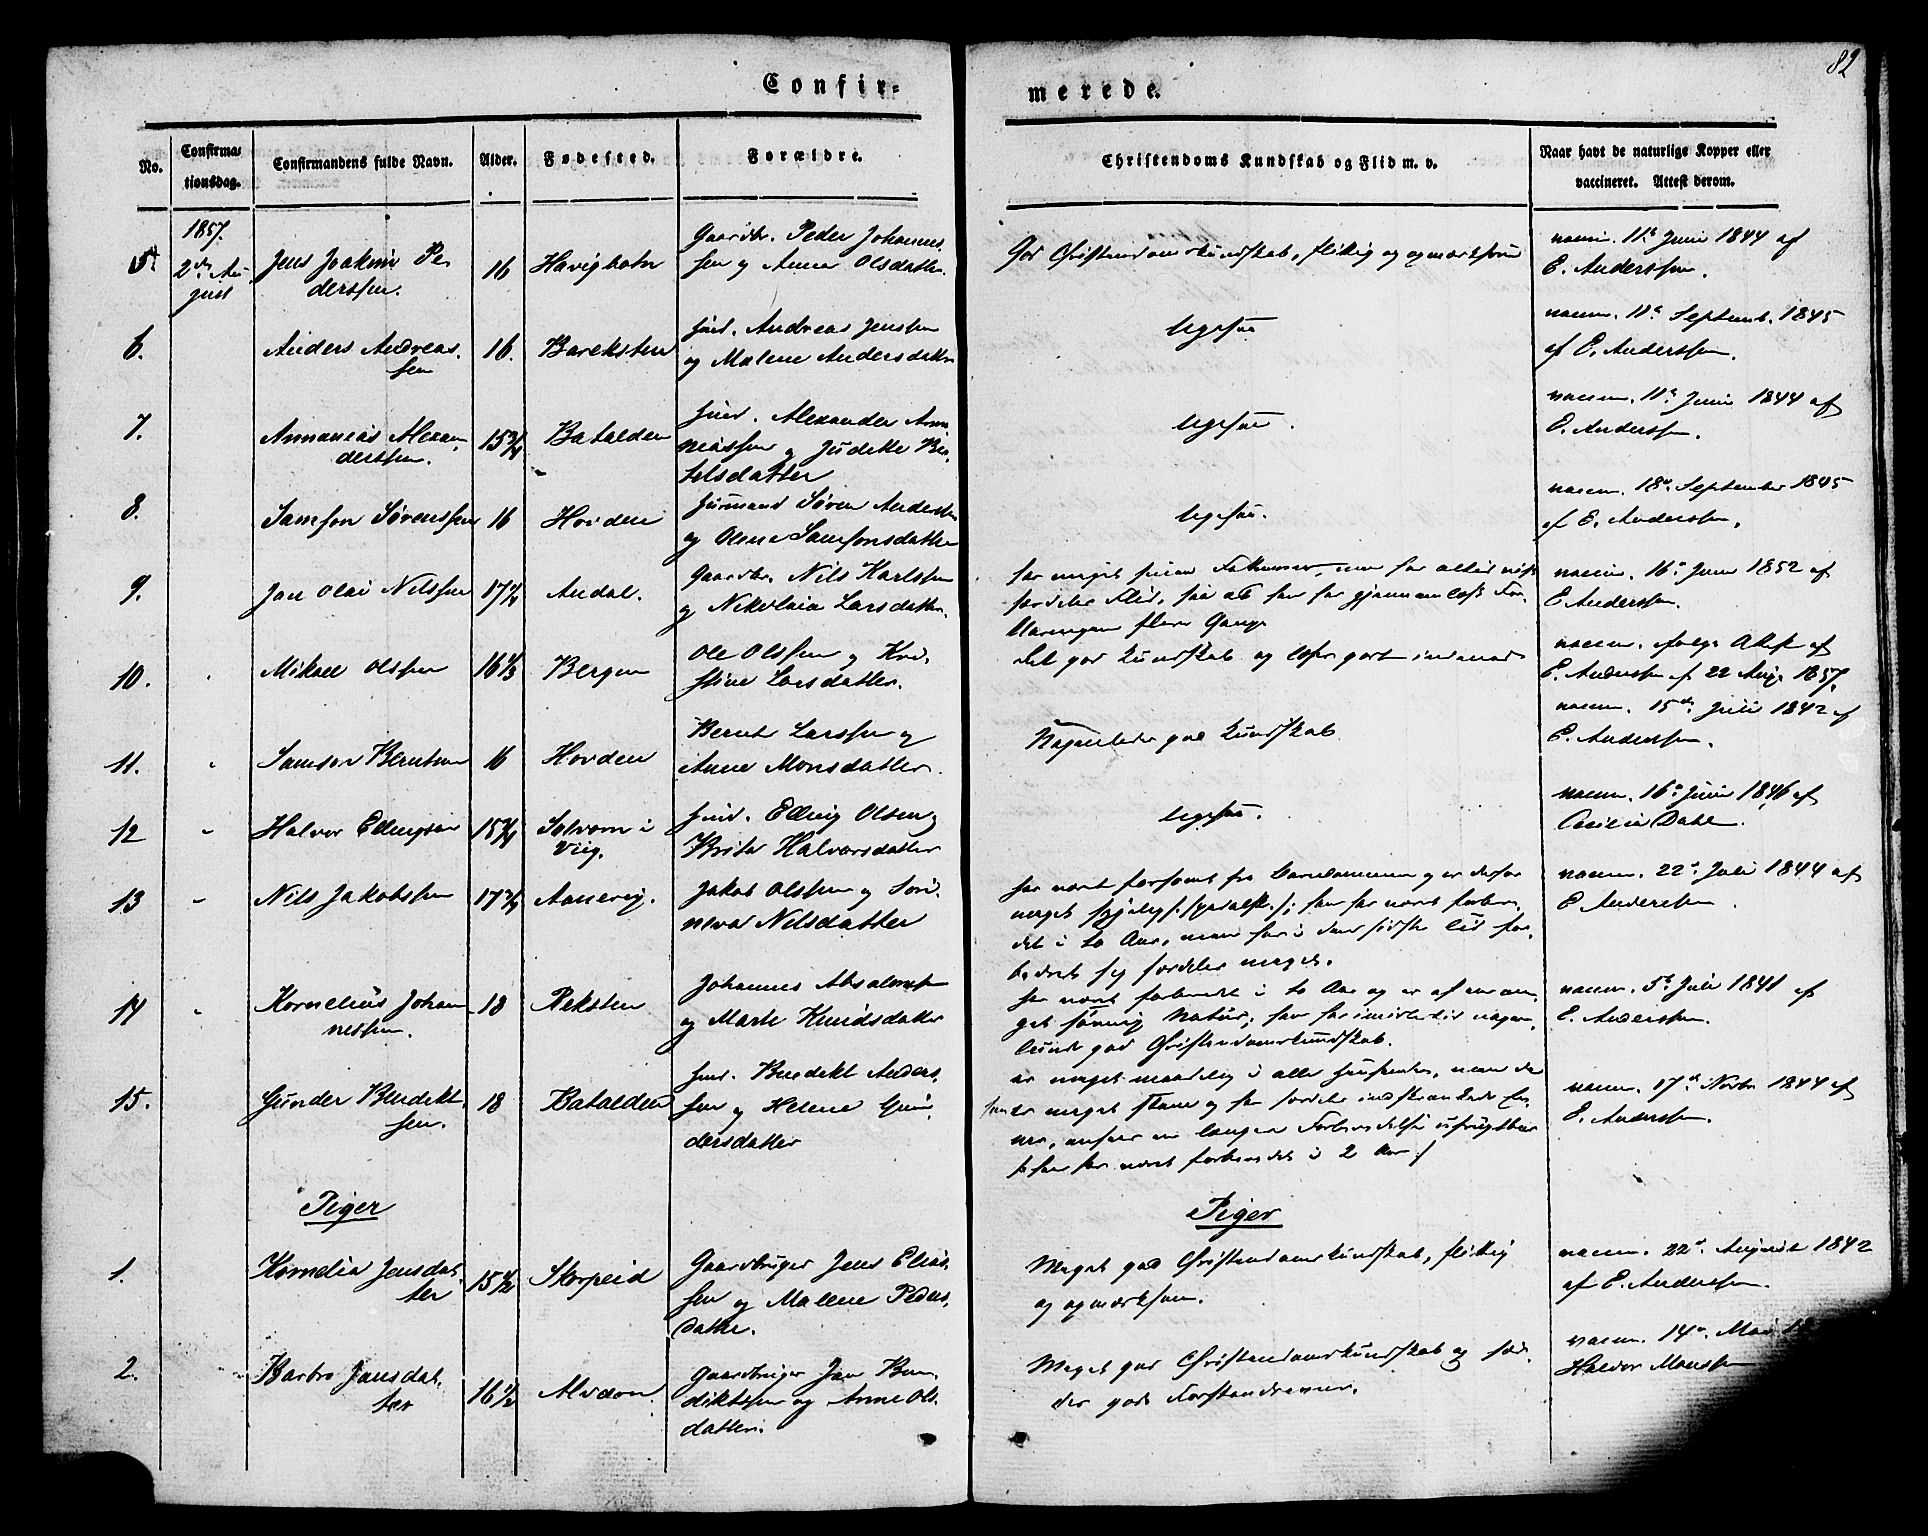 82
Confir=
merede.
No.
Confirma=
tionsdag.
Confirmandens fulde Navn.
Alder.
Fødested.
Forældre.
Christendoms Kundskab og Flid m. v.
Naar havt de naturlige Kopper eller
vaccineret. Attest derom.
1857.
5.
2den Au
gust
Jens Joakim Pe
derssen.
16
Havighavn
Gaardbr. Peder Johannes
sen og Anna Olsdatter
God Christendomskundskab, flittig og opmærksom
vaccin. 11te Juni 1844 af
E. Anderssen.
6.
Anders Andreas
sen
16.
Bareksten
Huusm. Andreas Jenssen
og Malene Andersdatter
ligesaa
vaccin. 11te Septemb. 1845
af E. Anderssen.
7.
Annanias Alexan
derssen.
15¾
Batalden
Alexander Anna
niassen og Judithe Ber
telsdatter
ligesaa.
vaccin. 11te Juni 1844 af
E. Anderssen.
8.
Samson Sørenssen
16
Hovden
Huusmand Søren Anderssen
og Olene Samsonsdatter
ligesaa.
vaccin. 18de September 1845
af E. Anderssen.
9.
Jon Olai Nilssen
17¼
Andal.
Gaardbr. Nils Karlssen
og Nikolaia Larsdatter.
har meget
Flid, saa at han har gjennemlæst For
klaringen flere Gange
vaccin. 16de Juni 1852 af
E Anderssen.
10.
Mikael Olssen
16⅓
Bergen
Ole Olssen og Kri
stine Larsdatter.
Ret god Kundskab og læser godt indenad
vaccin. ifølge Attest af
E. Anderssen af 22 Aug. 1857.
11.
Samson Berntsen
16
Hovden
Bernt Larssen og
Anne Monsdatter.
Nogenledes god Kundskab
vaccin. 15de Juli 1842 af
E. Anderssen.
12
Halvor Ellingsen
15¾
Solvom i
Viig.
Elling Olsen og
Brita Halvorsdatter
ligesaa.
vaccin. 16de Juni 1846 af
Cecilia Dahl.
13
Nils Jakobssen
17¾
Aanevig.
Jakob Olssen og Sni
neva Nilsdatter
har været forsømt fra Barndommen og er derfor
meget han har været forbere
det i to Aar, men har i den sidste Tid for
bedret sig meget.
vaccin. 22de Juli 1844 af
E Anderssen.
14
Kornelius Johan
nessen.
18
Reksten
Johannes Absalonsen
og Marte Knudsdatter
har været forberedt i to Aar og er af en
Natur; har imidlertid nogen
lunde god Christendomskundskab.
vaccin. 5te Juli 1841 af
E. Anderssen.
15.
Gunder Benedikt
sen.
18
Batalden
Benedikt Anders
sen og Helene Gun
dersdatter
er meget maadelig i alle Henseender, men da
er meget og har indskrænkede Ev
ner, ansees en længere Forberedelse ufrugtbar
han har været forberedet i 2 Aar.
vaccin. 17de Novbr 1844 af
E. Anderssen.
Piger
Piger
1.
Kornelia Jensdat
ter
15½
Skorpeid
Gaardbruger Jens Elias
sen og Malene Peders
datter.
Meget god Christendomskundskab, flittig
og opmærksom.
vaccin. 22de August 1842
af E. Anderssen.
2.
Barbro Jansdat
ter
16½
Alvdon
Gaardbruger Jan Ben
diktssen og Anne Ols
datter.
Meget god Christendomskundskab og
gode Forstandsevner.
vaccin. 14de Mai 18
Halvor Monssen